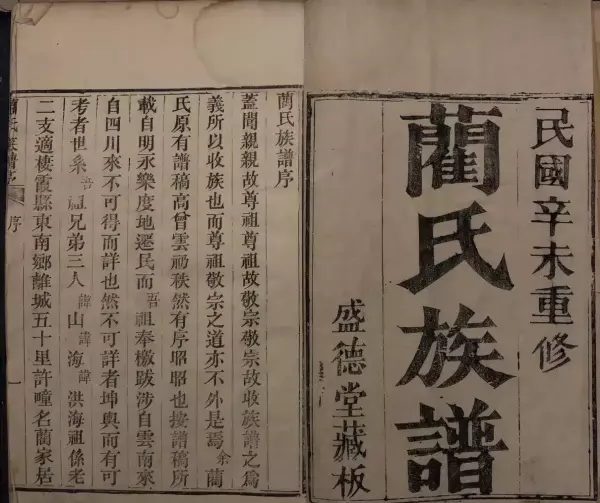 民國辛未重修
藺氏族譜
盛德堂藏板
藺氏族譜序
蓋聞親親故尊祖尊祖故敬宗敬宗故收族譜之爲
義所以收族也而尊祖敬宗之道亦不外是焉余藺
氏原有譜稿高曾雲礽秩然有序昭昭也按譜稿所
載自明永樂度地遷民而吾祖奉檄跋涉自雲南來
自四川來不可得而詳也然不可詳者坤輿而有可
考者世系吾祖兄弟三人諱山諱海諱洪海祖係老
二支適棲霞縣東南鄉離城五十里許疃名藺家居
藺氏族譜序
序
一